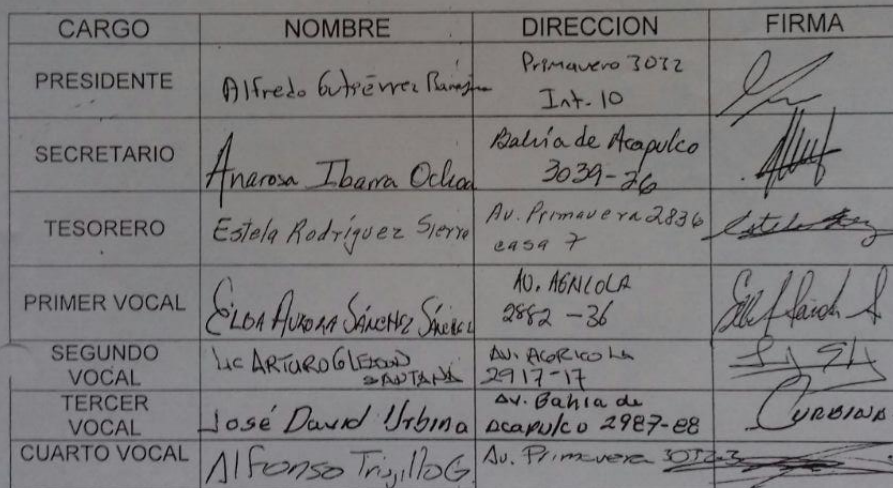 CARGO NOMBRE DIRECCION FIRMA
PRESIDENTE Alfredo Gutiérrez Primavera 3032
Int. 10
SECRETARIO Anarosa Ibarra Ochoa Bahía de Acapulco
3039-26
TESORERO Estela Rodríguez Sierra Av. Primavera 2836
casa 7
PRIMER VOCAL ELDA AURORA SÁNCHEZ SÁNCHEZ AV. AGRICOLA
2882-36
SEGUNDO VOCAL LIC ARTURO SANTANA AV. AGRICOLA
2917-17
TERCER VOCAL José David Urbina Av. Bahia de
Acapulco 2987-88 URBINA
CUARTO VOCAL Alfonso Trujillo G. Av. Primavera